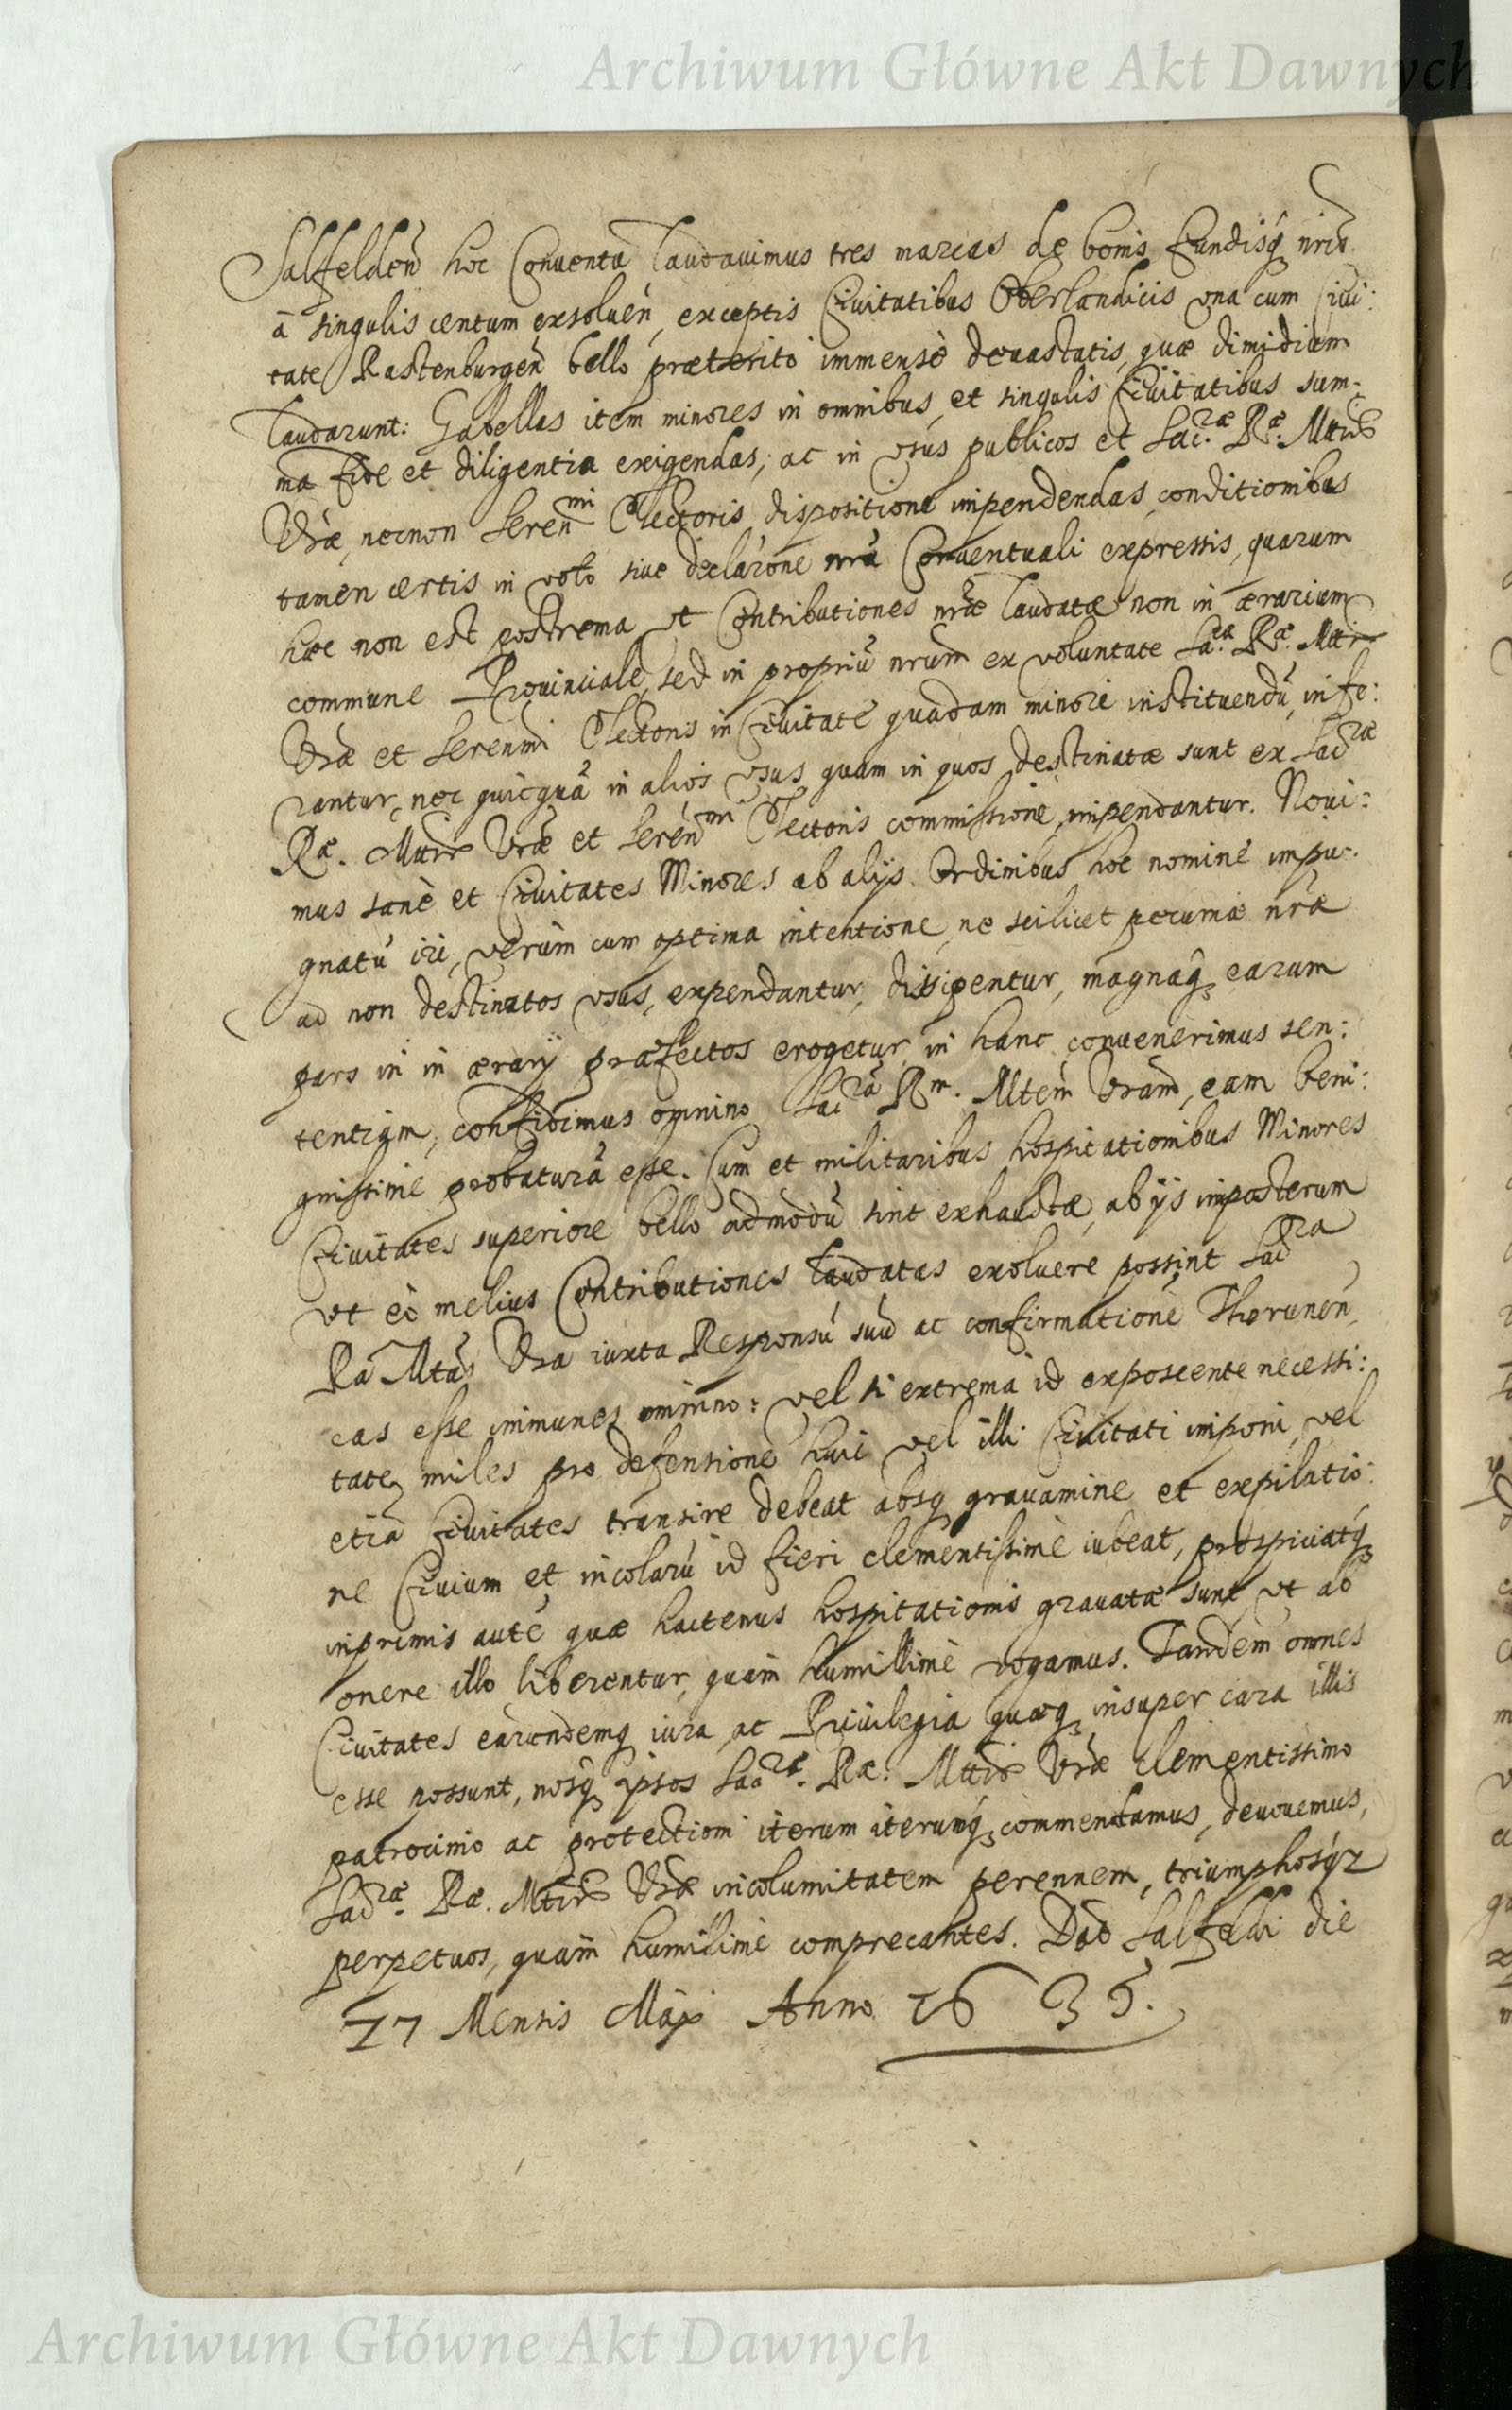 Archiwum Główne Akt Dawnych
Salfelden̄ hoc Conventu laudavimus tres marcas de bonis fundisq́ nr̄is
à singulis centum exsoluen̄, exceptis Civitatibus Oberlandicis vna cum Civi:
tate Rastenburgen̄ bello præterito immensè devastatis, quæ dimidium
laudarunt: Gabellas item minores in omnibus et singulis Civitatibus sum:
ma fide et diligentia exigendas; ac in vsus publicos et Sac.ræ Ræ. Mttis
Vræ, necnon Seren̄mi Electoris dispositione impendendas, conditionibus
tamen certis in voto sive declar̄one nr̄a Conventuali expressis, quarum
hæc non est postrema, vt Contributiones nr̄æ laudatæ non in ærarium
commune Provinciale, sed in propriū nr̄um ex voluntate Sa.ræ Ræ. Mttis
Vræ et Seren̄mi Electoris in Civitate quadam minore instituendū, infe:
rantur, nec quicquā in alios vsus, quam in quos destinatæ sunt ex Sacræ
Ræ. Mttis Vræ et Seren̄mi Electoris commissione, impendantur. Novi:
mus sanè et Civitates Minores ab alijs Ordinibus hoc nomine impu:
gnatū iri, verùm cum optima intentione, ne scilicet pecuniæ nr̄æ
ad non destinatos vsus, expendantur, dissipentur, magnaq́ earum
pars in in ærarij præfectos erogetur, in hanc convenerimus sen:
tentiam, confidimus omnino Sacrā Rm. Mtem Vram, eam beni:
gnissimè probaturā esse. Cum et militaribus hospitationibus Minores
Civitates superiore bello admodū sint exhaustæ, ab ijs imposterum
vt eò melius Contributiones laudatas exoluere possint Sacra
Ra Mtas Vra iuxta Responsū suū ac confirmationē Thorunen̄,
eas esse immunes omnino: vel si extrema id exposcente necessi:
tate, miles pro defensione huic vel illi Civitati imponi, vel
etiā Civitates transire debeat absq́ gravamine et expilatio:
ne Civium et incolarū id fieri clementissimè iubeat, prospiciatq́
inprimis autē quæ hactenus hospitationis gravatæ sunt, vt ab
onere illo liberentur, quàm humillimè rogamus. Tandem omnes
Civitates earundemq́ iura, ac Privilegia quæq́ insuper cara illis
esse possunt, nosq́ ipsos Sacræ. Ræ. Mttis Vræ clementissimo
patrocinio ac protectioni iterum iterumq́ commendamus, devovemus,
Sacræ. Ræ. Mttis Vræ incolumitatem perennem, triumphosq́
perpetuos, quàm humillimè comprecantes. Dat̄ Salfeldi die
17 Mensis Maÿ Anno 1635.
Archiwum Główne Akt Dawnych